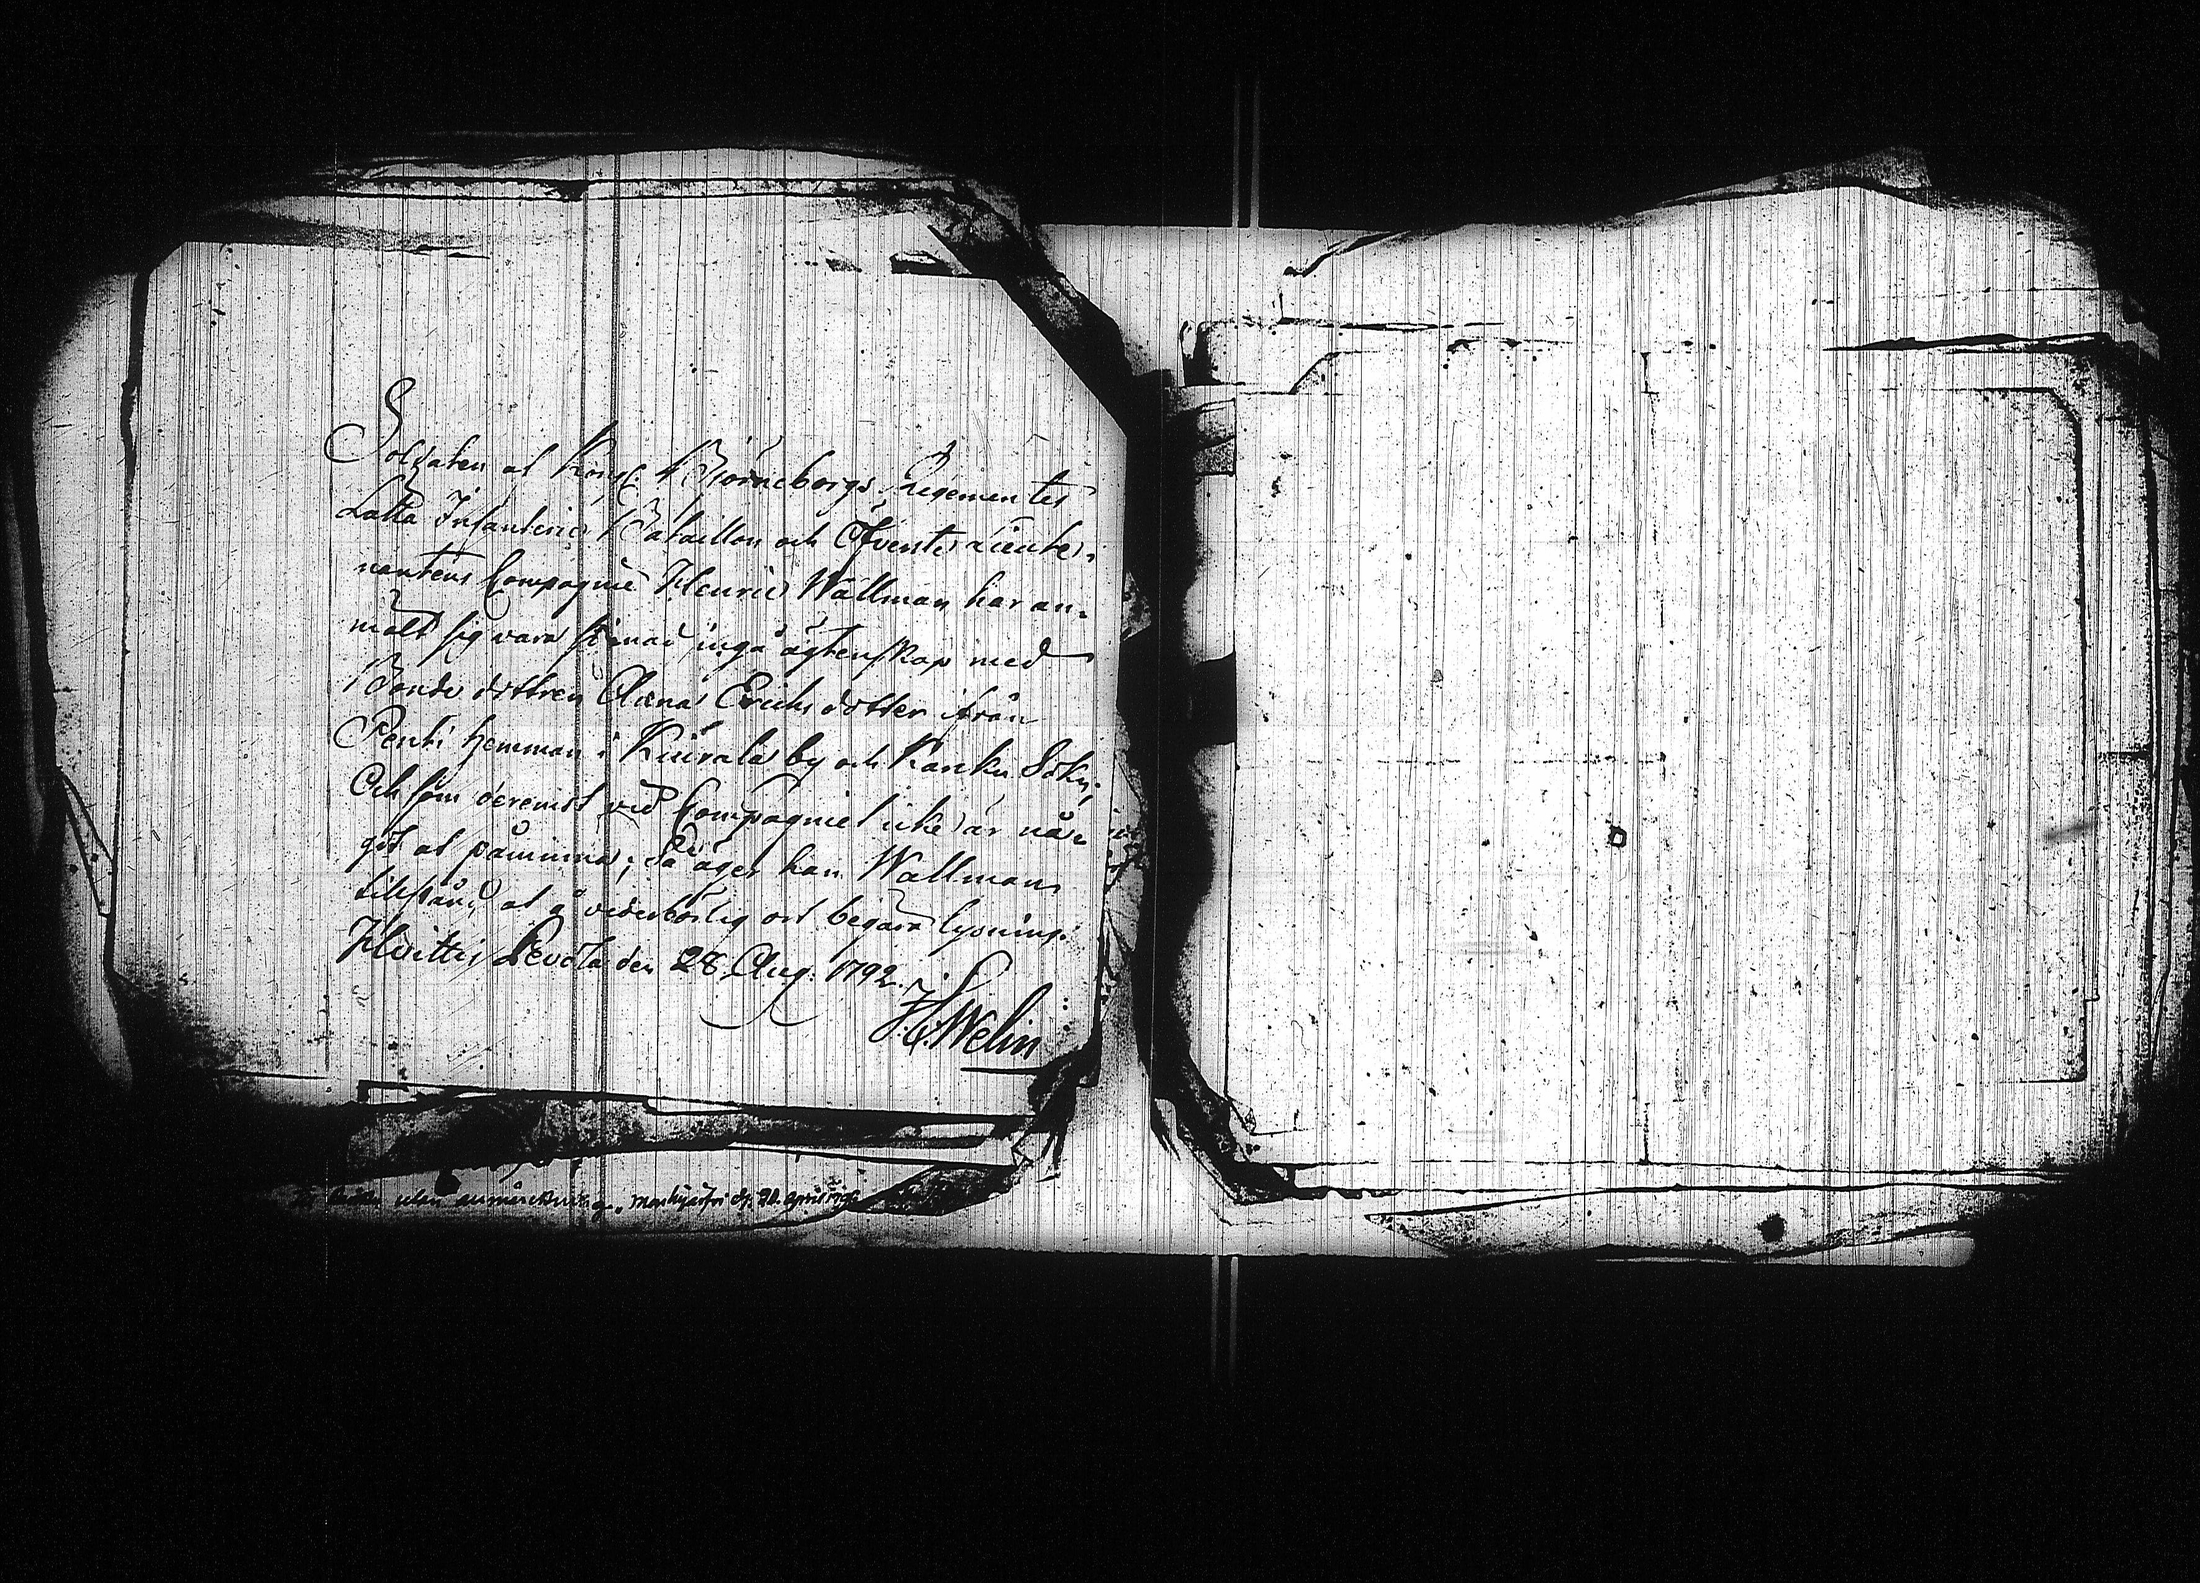 Soldaten af Kongl. Björneborgs Regementes
Lätta Infanterie Bataillon och Öfverste Lieute,
nantens Compagnie Henric Wallman har an,
mält sig vara sinnad ingå ägtenskap med
Bonde dottren Anna Erichs dotter ifrån
Pentti hemman i Kiurala by och Kanku Sokn,
Och som deremot vid Compagniet icke är nå,
got at påminna; Så äger han Wallman
tillstånd at å vederbörlig ort begära lysning.
Hvittis Levola den 28 Aug. 1792.
H. Welin
utan anmärckning, d. 20. april